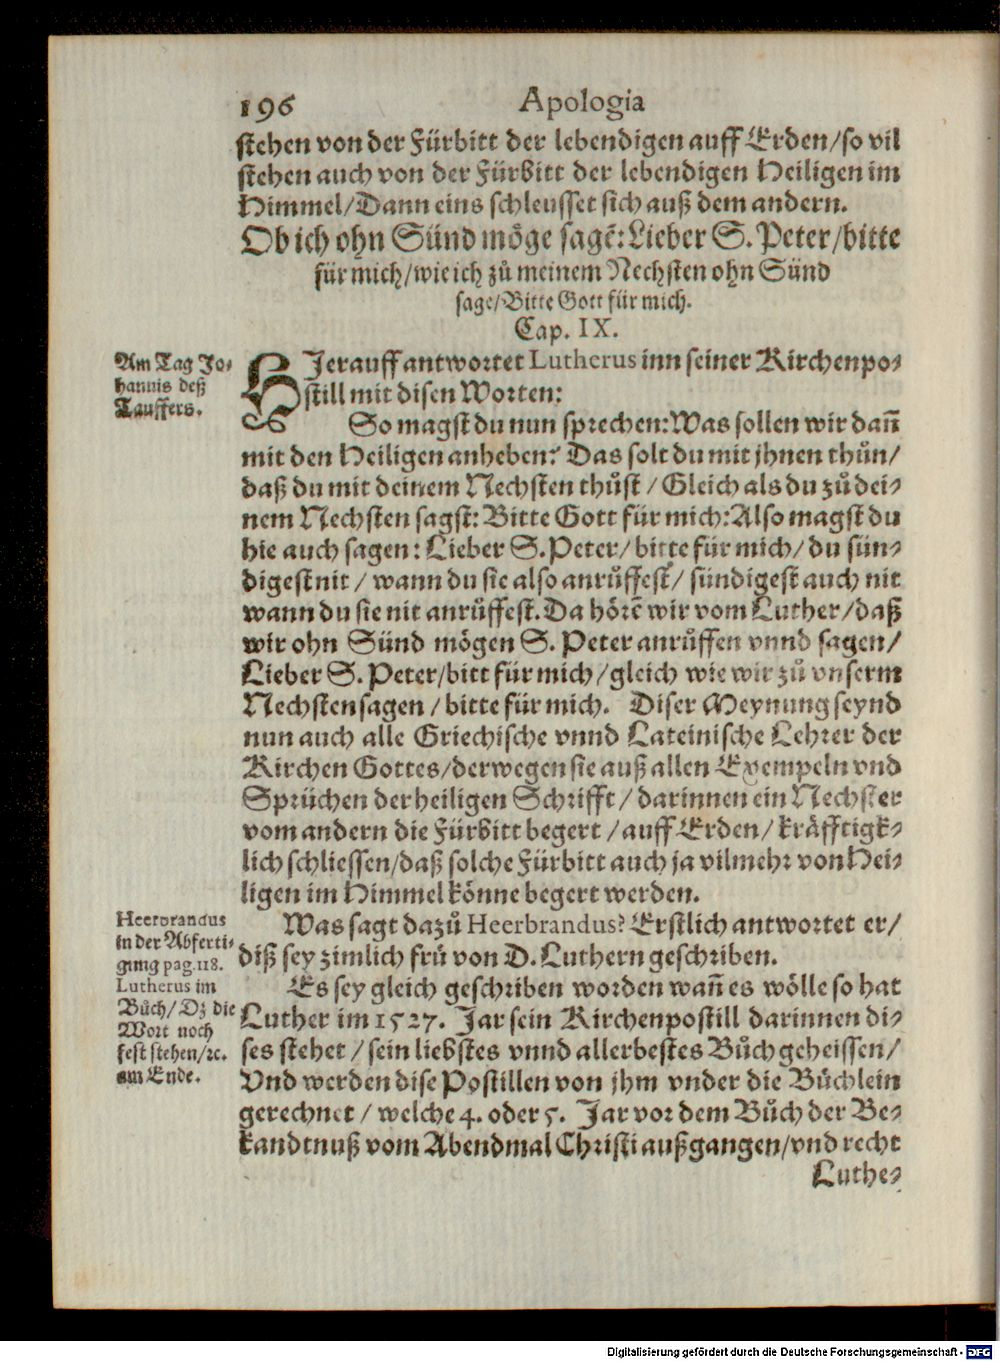 196 Apologia
stehen von der Fürbitt der lebendigen auff Erden/so vil
stehen auch von der Fürbitt der lebendigen Heiligen im
Himmel/Dann eins schleusset sich auß dem andern.
Ob ich ohn Sünd möge sagẽ: Lieber S. Peter/bitte
für mich/wie ich zů meinem Nechsten ohn Sünd
sage/Bitte Gott für mich.
Cap. IX.
Am Tag Jo-
hannis deß
Tauffers.
HJerauff antwortet Lutherus inn seiner Kirchenpo-
still mit disen Worten:
So magst du nun sprechen: Was sollen wir dañ
mit den Heiligen anheben? Das solt du mit jhnen thůn/
daß du mit deinem Nechsten thůst/Gleich als du zů dei-
nem Nechsten sagst: Bitte Gott für mich: Also magst du
hie auch sagen: Lieber S. Peter/bitte für mich/du sün-
digest nit/wann du sie also anrůffest/sündigest auch nit
wann du sie nit anrůffest. Da hörẽ wir vom Luther/daß
wir ohn Sünd mögen S. Peter anrůffen vnnd sagen/
Lieber S. Peter/bitt für mich/gleich wie wir zů vnserm
Nechsten sagen/bitte für mich. Diser Meynung seynd
nun auch alle Griechische vnnd Lateinische Lehrer der
Kirchen Gottes/derwegen sie auß allen Exempeln vnd
Sprüchen der heiligen Schrifft/darinnen ein Nechster
vom andern die Fürbitt begert/auff Erden/kräfftigk-
lich schliessen/daß solche Fürbitt auch ja vilmehr von Hei-
ligen im Himmel könne begert werden.
Heerbrandus
in der Abferti-
gung pag. 118.
Lutherus im
Bůch/Dz die
Wort noch
fest stehen/ꝛc.
am Ende.
Was sagt dazů Heerbrandus? Erstlich antwortet er/
diß sey zimlich frů von D. Luthern geschriben.
Es sey gleich geschriben worden wañ es wölle so hat
Luther im 1527. Jar sein Kirchenpostill darinnen di-
ses stehet/sein liebstes vnnd allerbestes Bůch geheissen/
Vnd werden dise Postillen von jhm vnder die Büchlein
gerechnet/welche 4. oder 5. Jar vor dem Bůch der Be-
kandtnuß vom Abendmal Christi außgangen/vnd recht
Luthe-
Digitalisierung gefördert durch die Deutsche Forschungsgemeinschaft - DFG